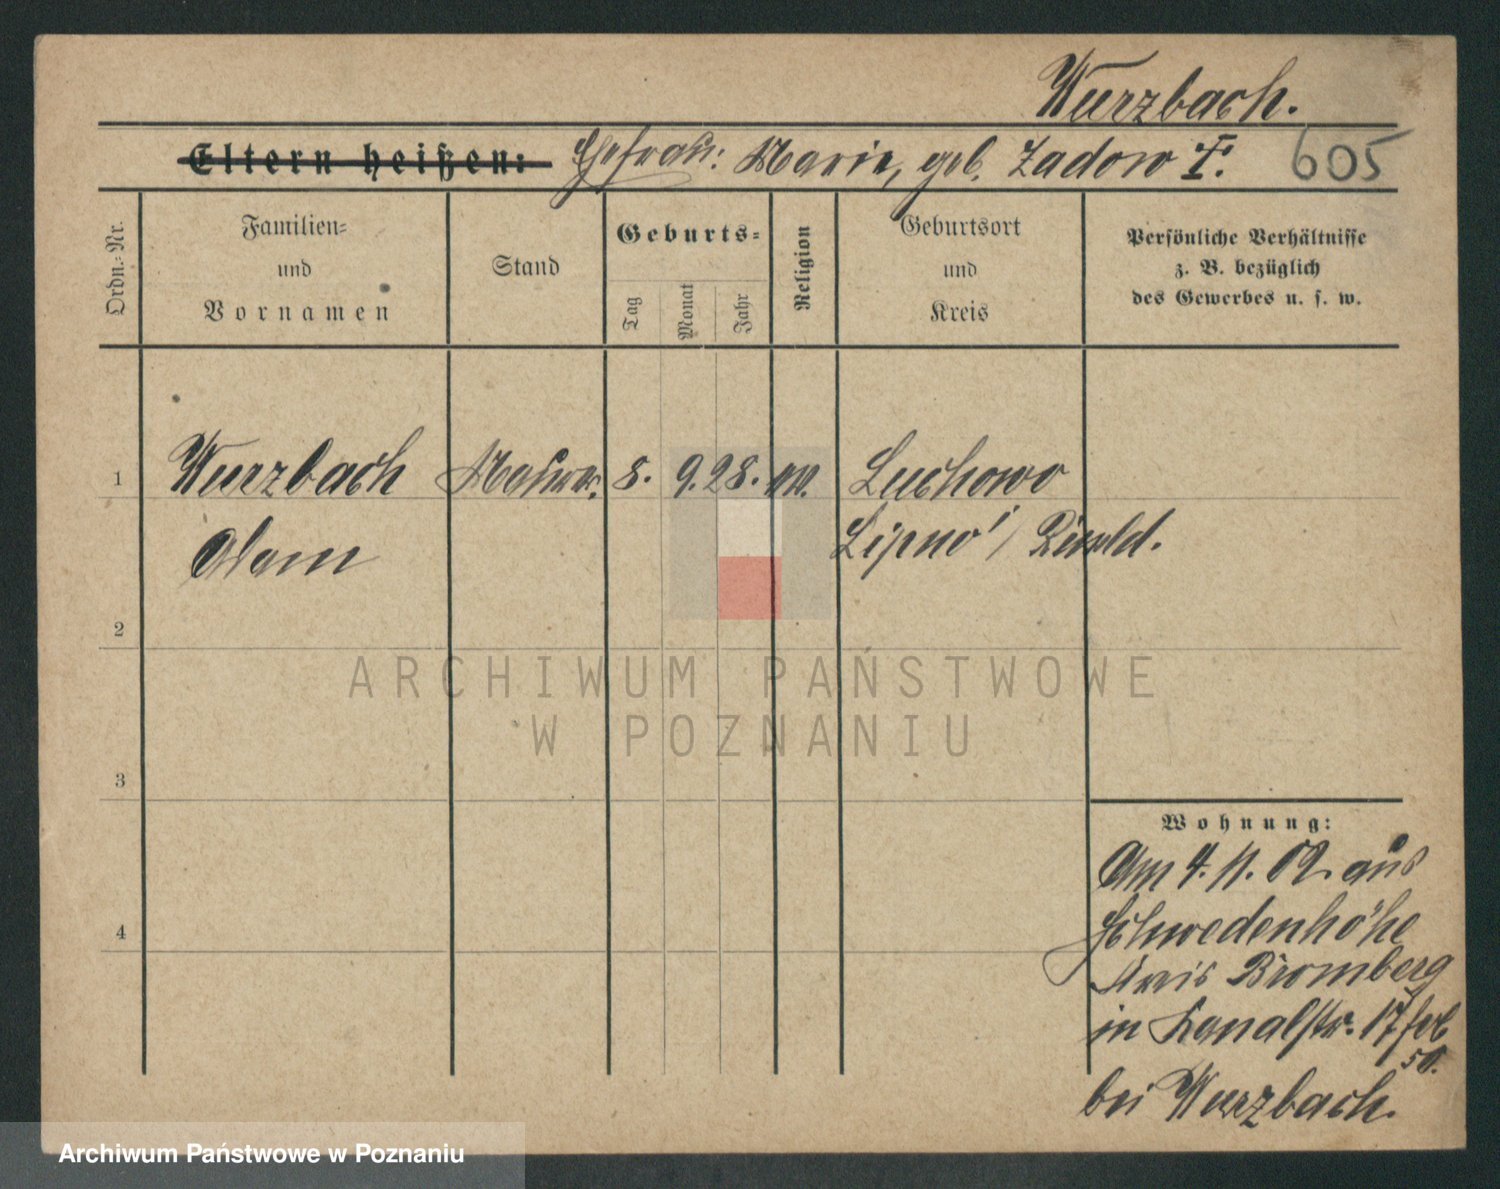 Wurzbach.
Eltern heißen: Ehefrau: Marie, geb. Zadow I.
605
Ordn.-Nr.
Familien-
und
Vornamen
Stand
Geburts-
Tag
Monat
Jahr
Religion
Geburtsort
und
Kreis
Persönliche Verhältnisse
z. B. bezüglich
des Gewerbes u. s. w.
1
Wurzbach
Adam
8. 9. 28. ev.
Luchowo
Lipno /
2
3
4
Wohnung:
Am 4. 11. 02. aus
Schwedenhöhe
Kreis Bromberg
in Kanalstr. 17
bei Wurzbach.
ARCHIWUM PAŃSTWOWE
W POZNANIU
Archiwum Państwowe w Poznaniu